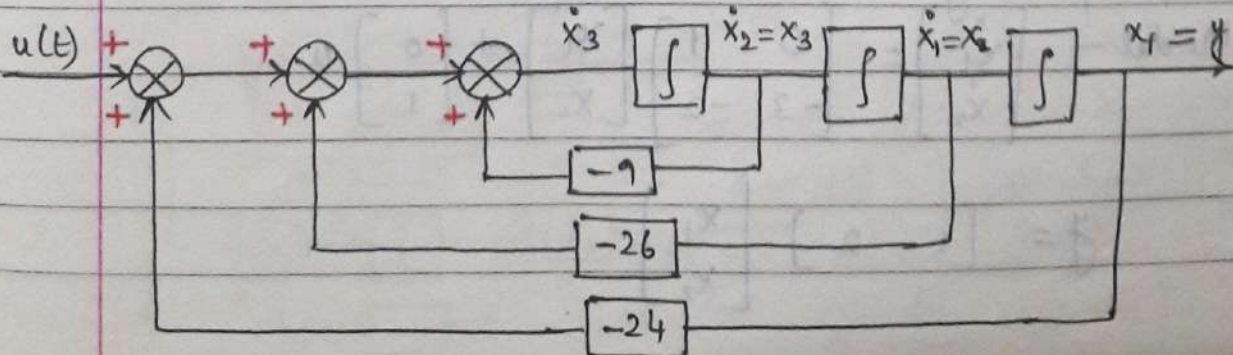 u(t) + + + ẋ₃ ∫ ẋ₂ = x₃ ∫ ẋ₁ = x₂ ∫ x₁ = y
+ + +
-9
-26
-24